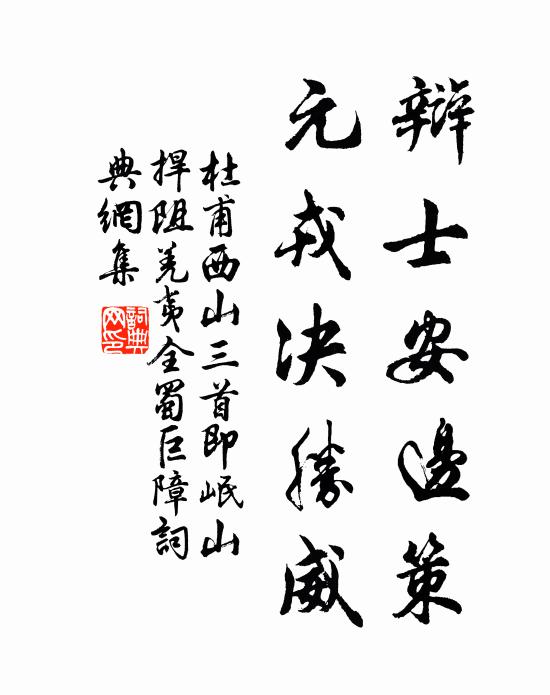 辯士安邊策
元戎決勝威
杜甫西山三首即岷山
捍阻羌夷全蜀巨障詞
典網集
詞典網印